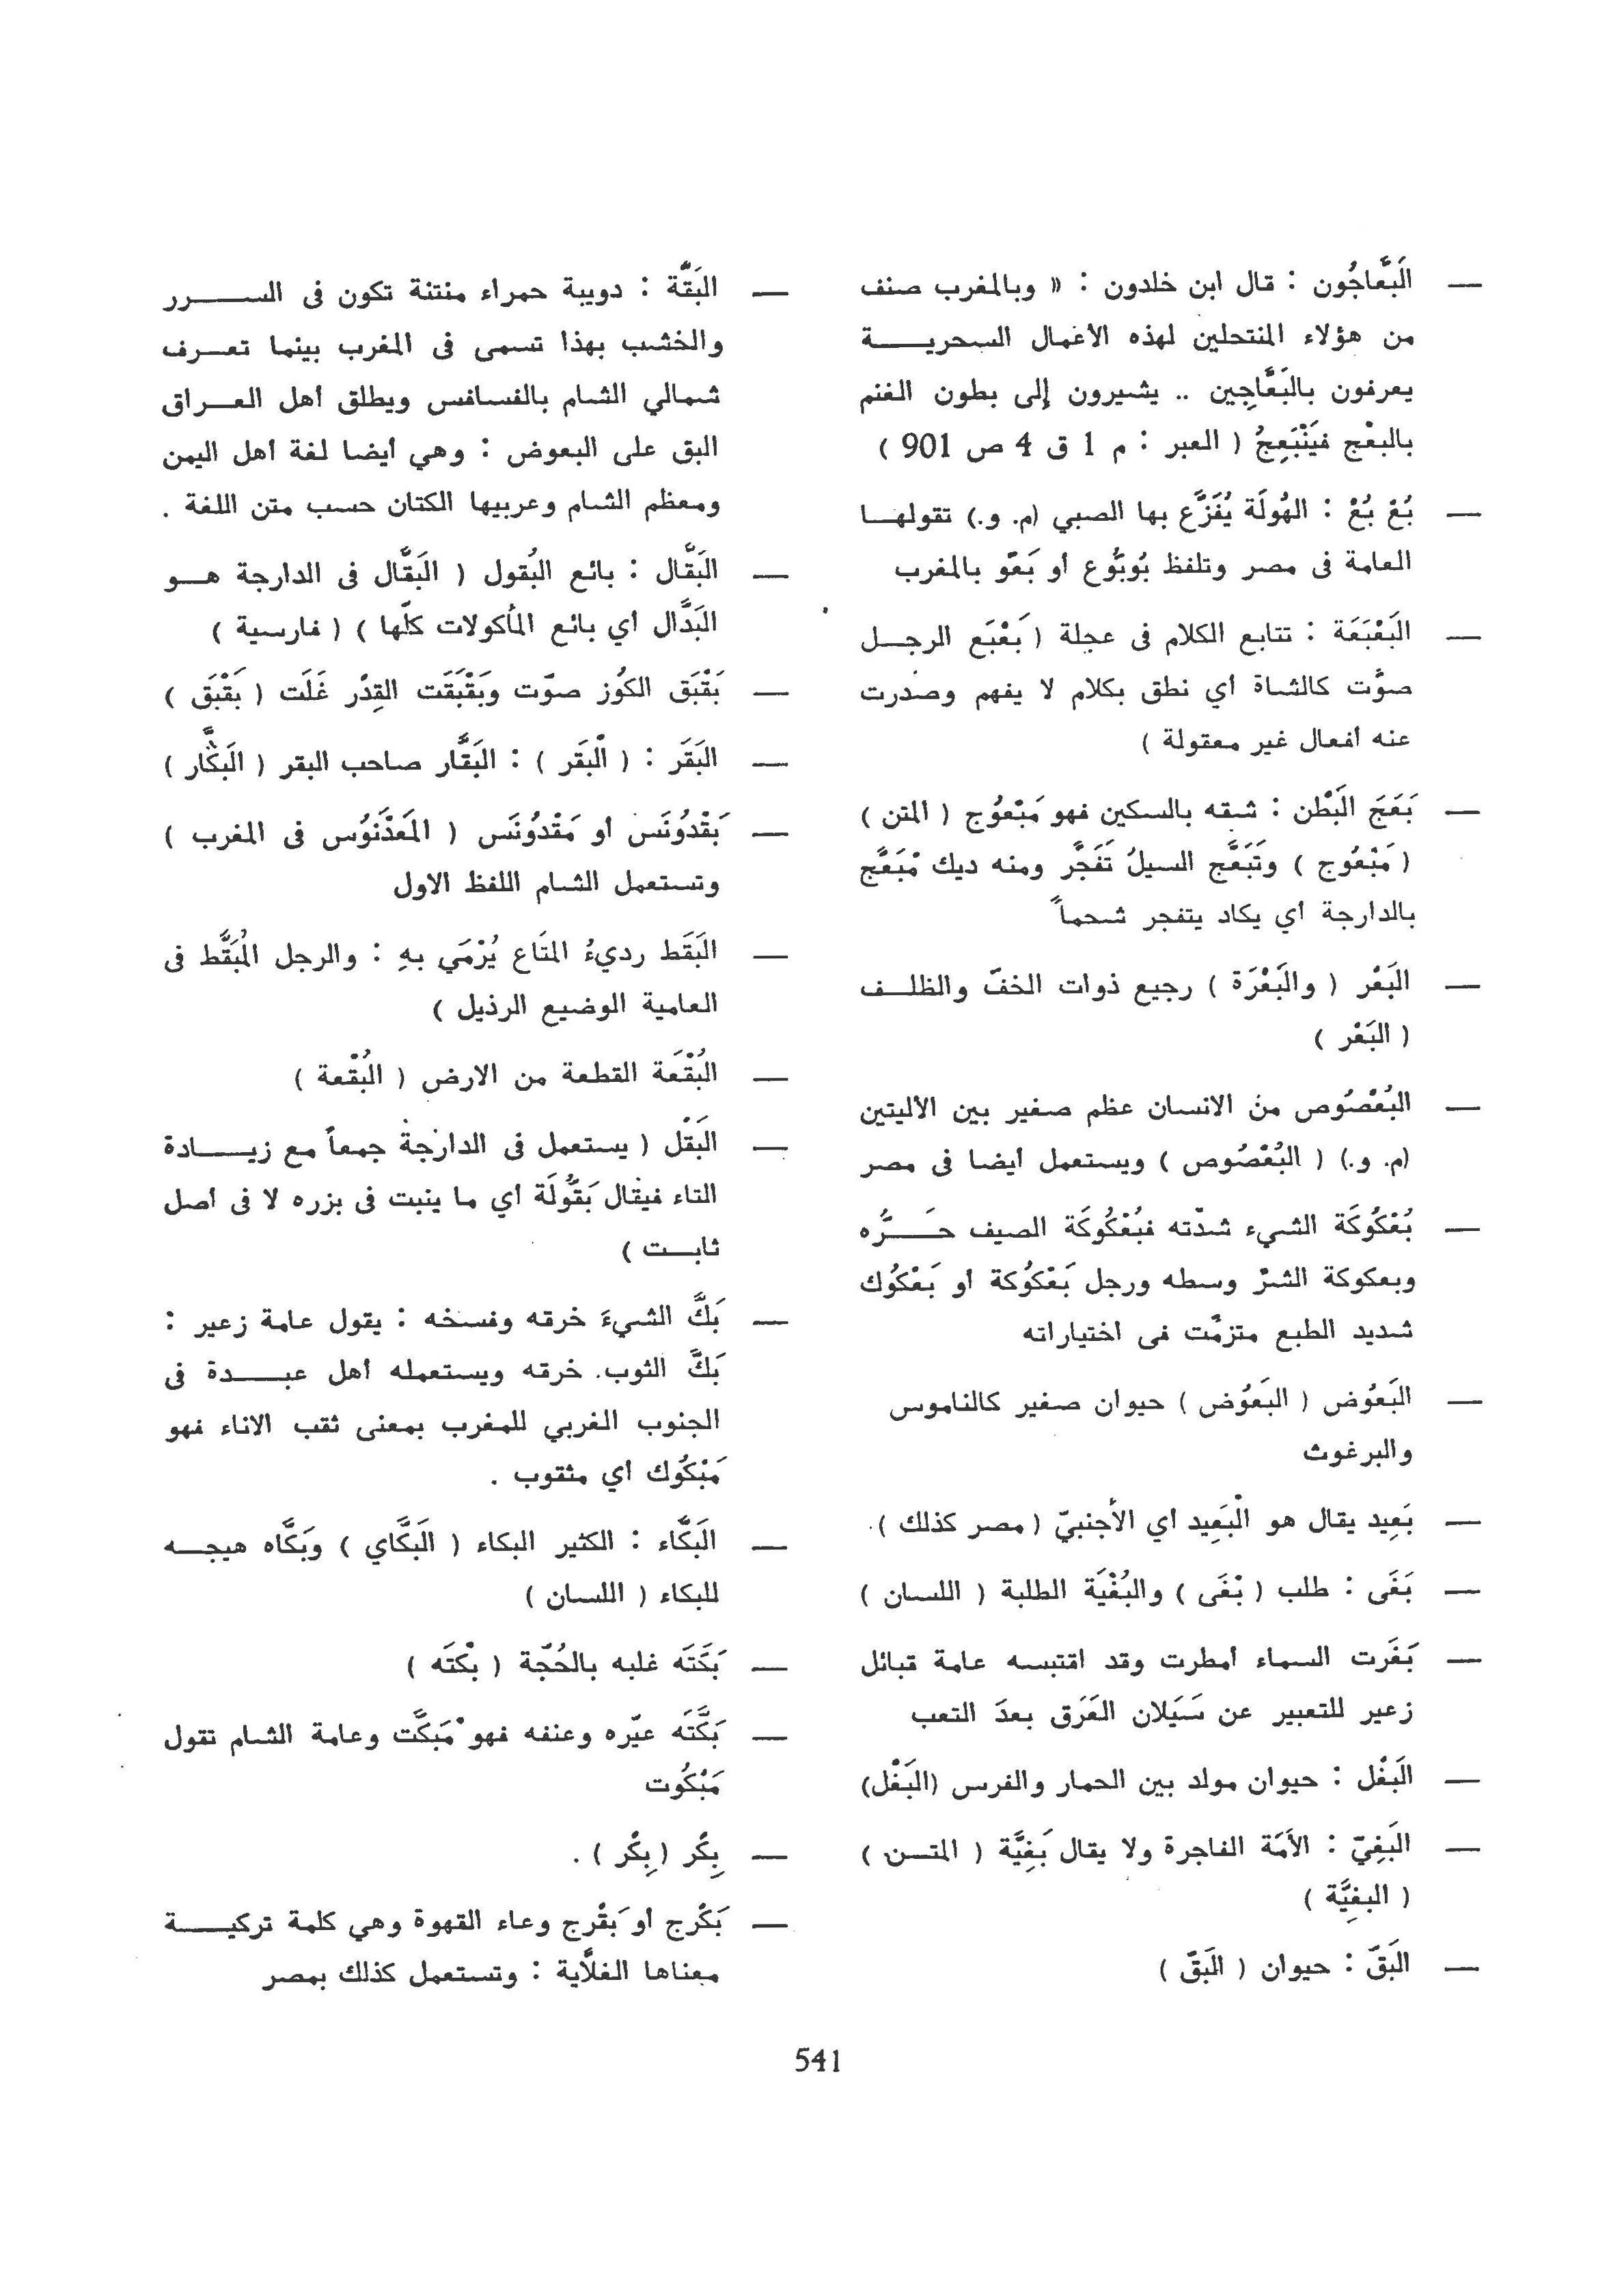 — البَعَّاجُون : قال ابن خلدون : « وبالمغرب صنف
من هؤلاء المنتحلين لهذه الأعمال السحريـــة
يعرفون بالبَعَّاجِين .. يشيرون إلى بطون الغنم
بالبعْج فيَنْبَعِجُ ( العبر : م 1 ق 4 ص 901 )
— بُعْ بُعْ : الهُولَة يُفَزَّع بها الصبي (م. و.) تقولهــا
العامة فى مصر وتلفظ بُوبُّوع أو بَعّو بالمغرب
— البَعْبَعَة : تتابع الكلام فى عجلة ( بَعْبَع الرجــل
صوَّت كالشاة أي نطق بكلام لا يفهم وصدرت
عنه أفعال غير معقولة )
— بَعَجَ البَطْن : شقه بالسكين فهو مَبْعُوج ( المتن )
( مَبْعُوج ) وتَبَعَّج السيلُ تَفَجَّر ومنه ديك مْبَعَّج
بالدارجة أي يكاد يتفجر شحماً
— البَعْر ( والبَعْرَة ) رجيع ذوات الخفّ والظلــف
( البَعْر )
— البُعْصُوص منْ الانسان عظم صغير بين الأليتين
(م. و.) ( البُعْصُوص ) ويستعمل أيضا فى مصر
— بُعْكُوكَة الشيء شدّته فبُعْكُوكَة الصيف حَــرُّه
وبعكوكة الشرّ وسطه ورجل بَعْكُوكة أو بَعْكُوك
شديد الطبع متزمَّت فى اختياراته
— البَعُوض ( البَعُوض ) حيوان صغير كالناموس
والبرغوث
— بَعِيد يقال هو الْبَعِيد أي الأجنبيّ ( مصر كذلك ).
— بَغَى : طلب ( بْغَى ) والبُغْيَة الطلبة ( اللسان )
— بَغَرت السماء أمطرت وقد اقتبسه عامة قبائل
زعير للتعبير عن سَيَلان العَرَق بعدَ التعب
— البَغْل : حيوان مولد بين الحمار والفرس (البَغْل)
— البَغِيّ : الأمَة الفاجرة ولا يقال بَغِيَّة ( المتــن )
( البغِيَّة )
— البَقّ : حيوان ( البَقّ )
— البَقَّة : دويبة حمراء منتنة تكون فى الســــرر
والخشب بهذا تسمى فى المغرب بينما تعــرف
شمالي الشام بالفسافس ويطلق أهل العــراق
البق على البعوض : وهي أيضا لغة أهل اليمن
ومعظم الشام وعربيها الكتان حسب متن اللغة .
— البَقَّال : بائع البُقول ( البَقَّال فى الدارجة هــو
البَدَّال أي بائع المأكولات كلّها ) ( فارسية )
— بَقْبَق الكوُز صوّت وبَقْبَقَت القِدْر غَلَت ( بَقْبَق )
— البَقَر : ( الْبَقَر ) : البَقَّار صاحب البقر ( الَبڭَّار )
— بَقْدُونَس أو مَقْدُونَس ( المَعدْنَوُس فى المغرب )
وتستعمل الشام اللفظ الاول
— البَقَط رديءُ المتَاع يُرْمَي بهِ : والرجل المُبَقَّط فى
العامية الوضيع الرذيل )
— البُقْعَة القطعة من الارض ( البُقْعة )
— البَقْل ( يستعمل فى الدارجة جمعاً مع زيــــادة
التاء فيقال بَقُّولَة أي ما ينبت فى بزره لا فى أصل
ثابــت )
— بَكَّ الشيءَ خرقه وفسخه : يقول عامة زعير :
بَكَّ الثوب. خرقه ويستعمله أهل عبــــدة فى
الجنوب الغربي للمغرب بمعنى ثقب الاناء فهو
مَبْكُوك أي مثقوب .
— البَكَّاء : الكثير البكاء ( البَكَّاي ) وبَكَّاه هيجــه
للبكاء ( اللسان )
— بَكَتَه غلبه بالحُجّة ( بْكَتَه )
— بَكَّتَه عيّره وعنفه فهو مْبَكَّت وعامة الشام تقول
مَبْكُوت
— بِكْر ( بِكْر ) .
— بَكْرج أو بَقْرج وعاء القهوة وهي كلمة تركيــــة
معناها الغلاَّية : وتستعمل كذلك بمصر
541